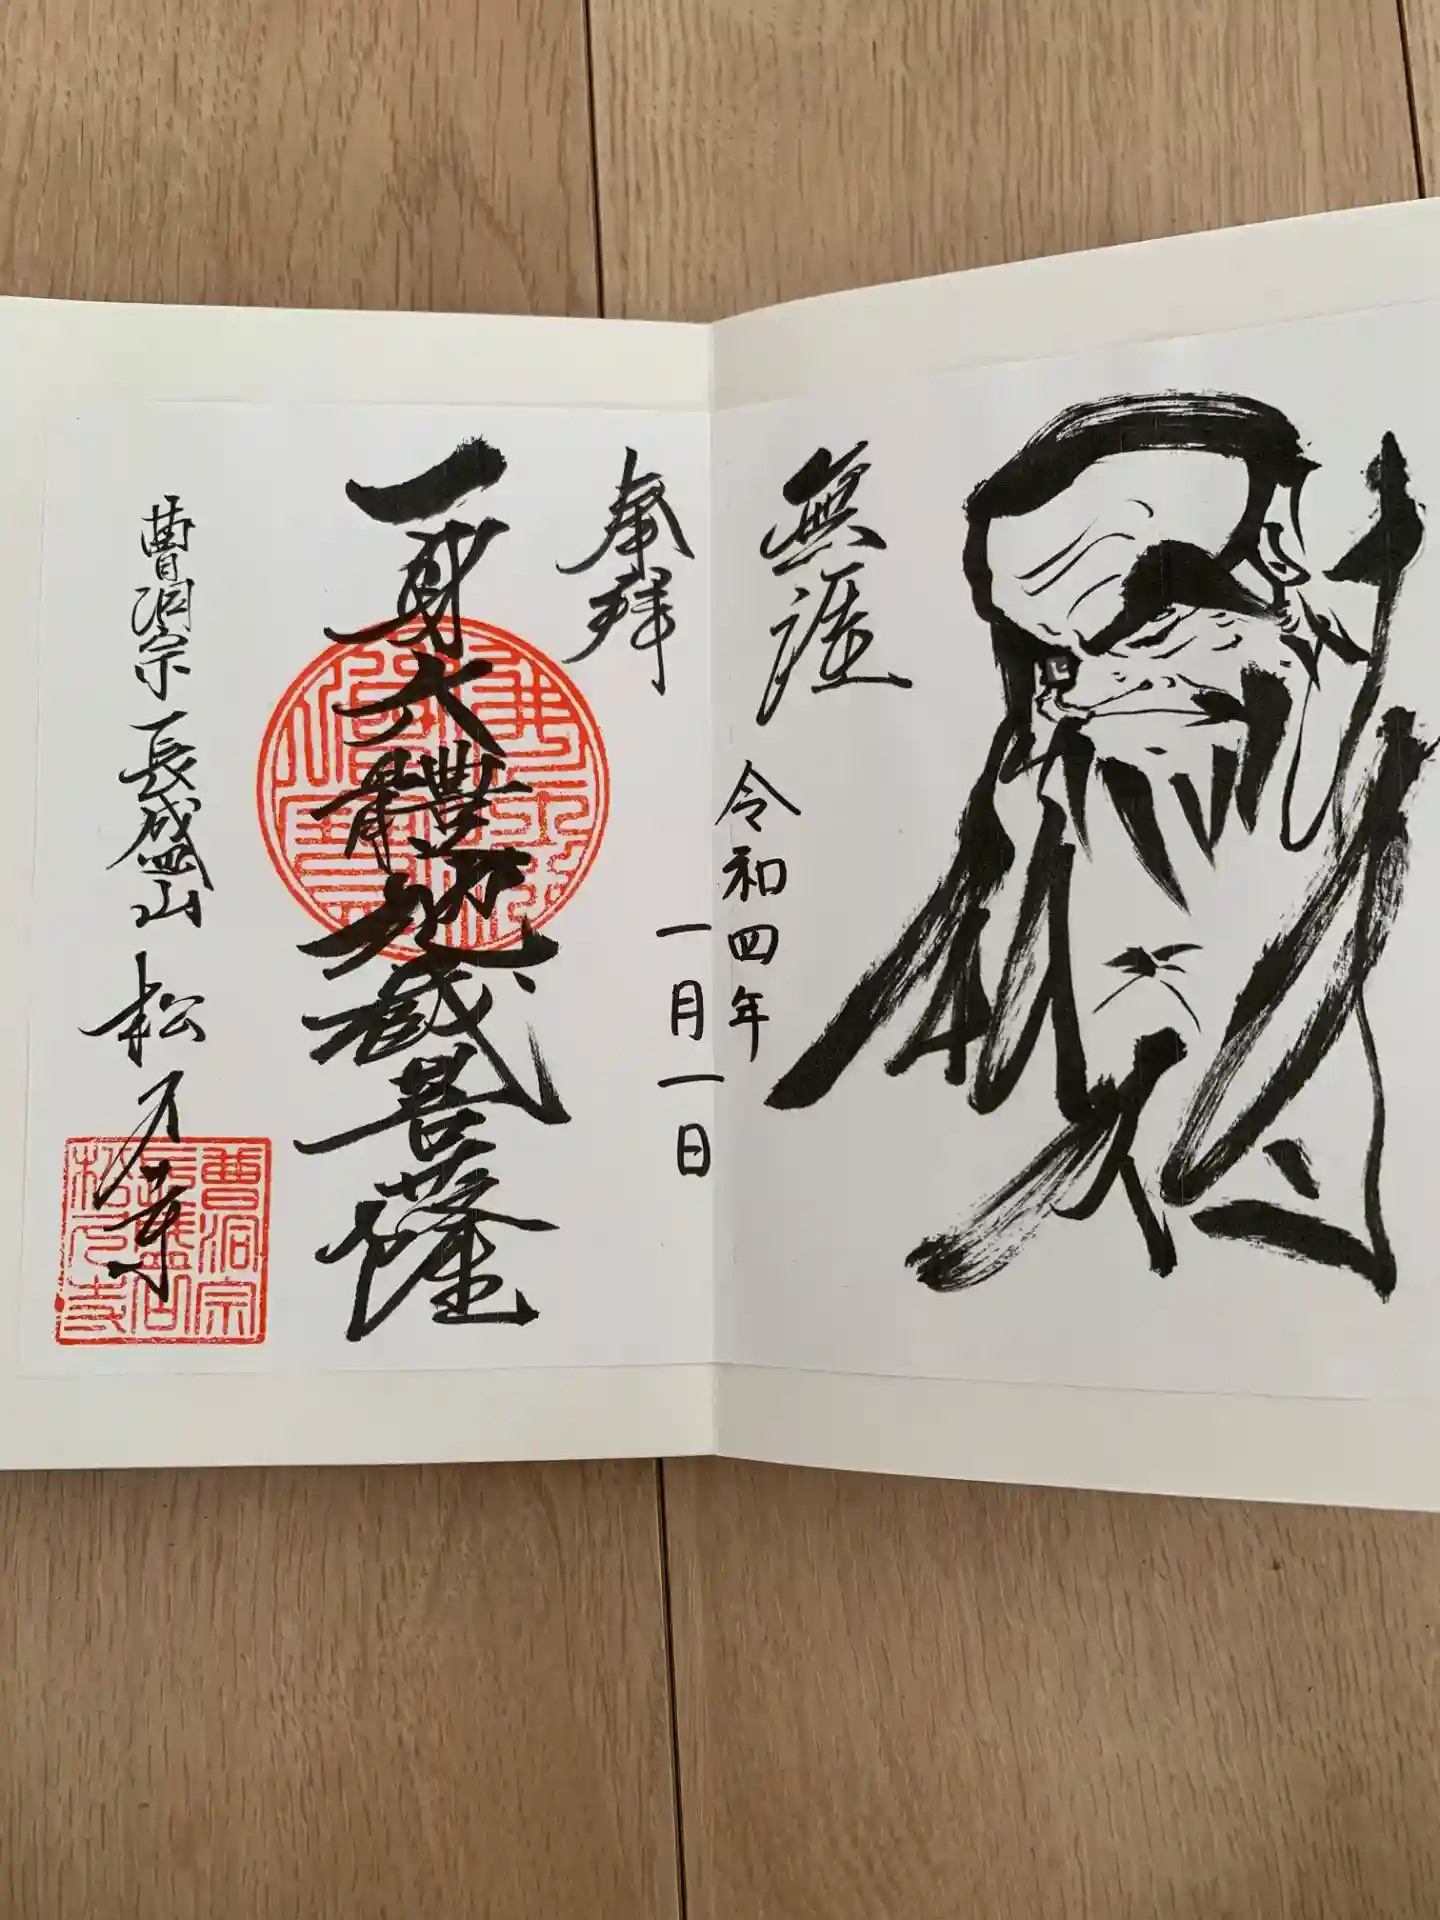 無涯
令和四年
一月一日
奉拝
一身大體地蔵菩薩
曹洞宗長盛山松万寺
曹洞宗
長盛山
松万寺